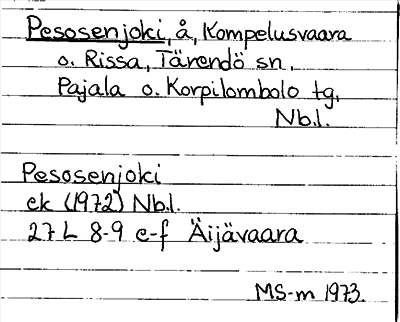 Pesosenjoki, å, Kompelusvaara
o. Rissa, Tärendö sn,
Pajala o. Korpilombolo tg,
Nb.l.
Pesosenjoki
ek (1972) Nb.l.
27 L 8-9 e-f Äijävaara
MS-m 1973.